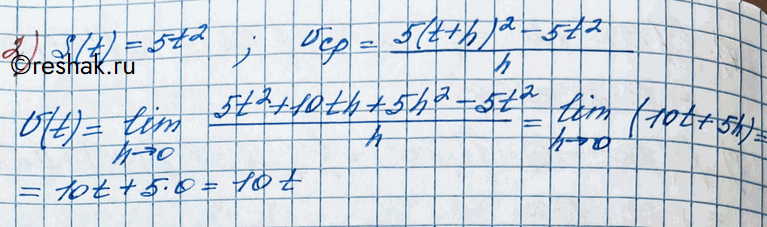 2) S(t) = 5t² ; υср = (5(t+h)² − 5t²)/h
©reshak.ru
υ(t) = lim h→0 (5t² + 10th + 5h² − 5t²)/h = lim h→0 (10t + 5h) =
= 10t + 5·0 = 10t